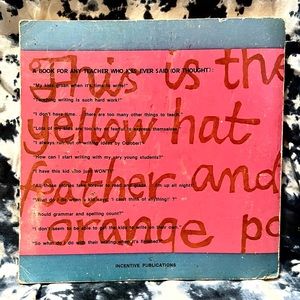 This is the
yellow hat
feather and
orange po
A BOOK FOR ANY TEACHER WHO HAS EVER SAID (OR THOUGHT):
"My kids groan when it's time to write!"
"Teaching writing is such hard work!"
"I don't have time. There are too many other things to teach."
"Lots of my kids are too shy or fearful to express themselves."
"I always run out of writing ideas by October!"
"How can I start writing with my very young students?"
"I have this kid who just WON'T!"
"But those stories take forever to read and grade. I'm up all night!"
"What do I do when a kid says, 'I can't think of anything!'?"
"Should grammar and spelling count?"
"I don't seem to be able to get the kids to write on their own."
"So what do I do with their writing when it's finished?"
INCENTIVE PUBLICATIONS